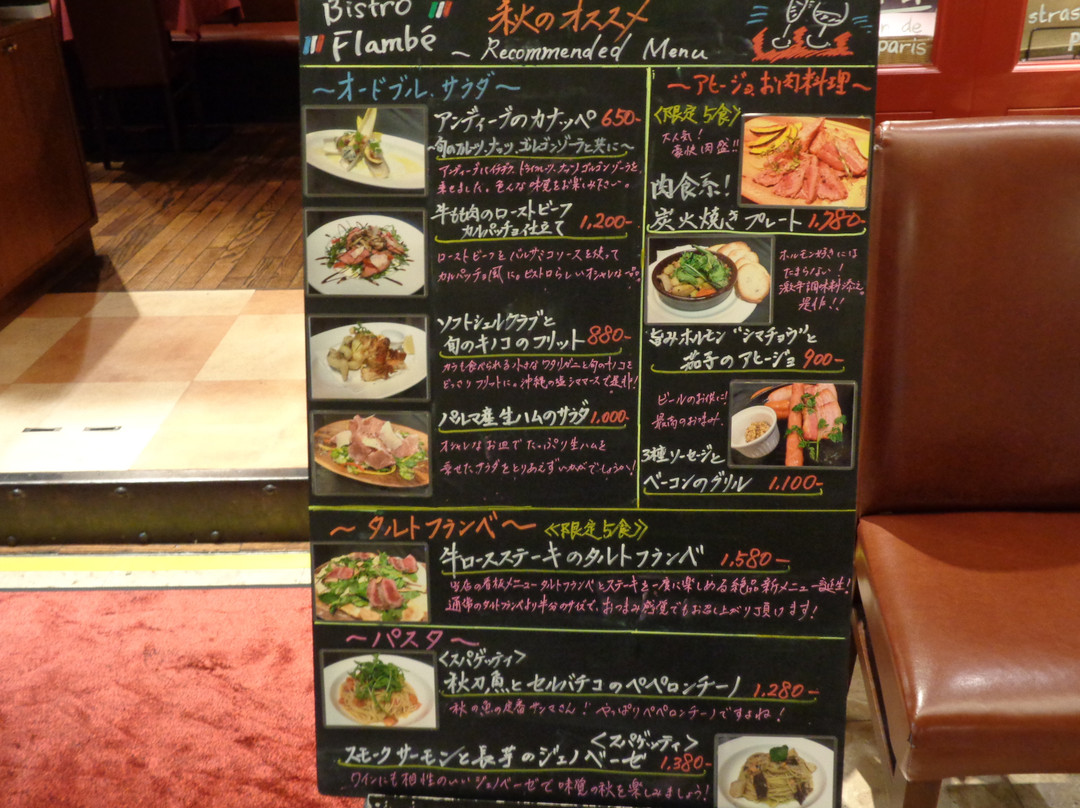 Bistro
Flambé
秋のオススメ
~ Recommended Menu
de
paris
stras
P
~オードブル、サラダ~
アンディーブのカナッペ 650-
~旬のフルーツ、ナッツ、ゴルゴンゾーラと共に~
アンディーブにイチヂク、ドライフルーツ、ナッツ、ゴルゴンゾーラを
乗せました。色んな味覚をお楽しみ下さい。
牛もも肉のローストビーフ
カルパッチョ仕立て 1,200-
ローストビーフをバルサミコソースを使って
カルパッチョ風に。ビストロらしいオシャレな一品。
ソフトシェルクラブと
旬のキノコのフリット 880-
カラも食べられる小さなワタリガニと旬のキノコを
どっさりフリットに。沖縄の塩シママースで是非!
パルマ産生ハムのサラダ 1,000-
オシャレなお皿でたっぷり生ハムを
乗せたサラダをとりあえずいかがでしょうか!
~アヒージョ、お肉料理~
《限定5食》
大人気!
豪快肉盛!!
肉食系!
炭火焼きプレート 1,780-
ホルモン好きには
たまらない!
激辛調味料添え。
是非!!
旨みホルモン"シマチョウ"と
茄子のアヒージョ 900-
ビールのお供に!
最高のお味み。
3種ソーセージと
ベーコンのグリル 1,100-
~タルトフランベ~ 《限定5食》
牛ロースステーキのタルトフランベ 1,580-
当店の看板メニュータルトフランベとステーキを一度に楽しめる絶品新メニュー誕生!
通常のタルトフランベより半分のサイズで、おつまみ感覚でもお召し上がり頂けます!
~パスタ~
<スパゲッティ>
秋刀魚とセルバチコのペペロンチーノ 1,280-
秋の魚の定番サンマさん!やっぱりペペロンチーノですよね!
<スパゲッティ>
スモークサーモンと長芋のジェノベーゼ 1,380-
ワインにも相性のいいジェノベーゼで味覚の秋を楽しみましょう!